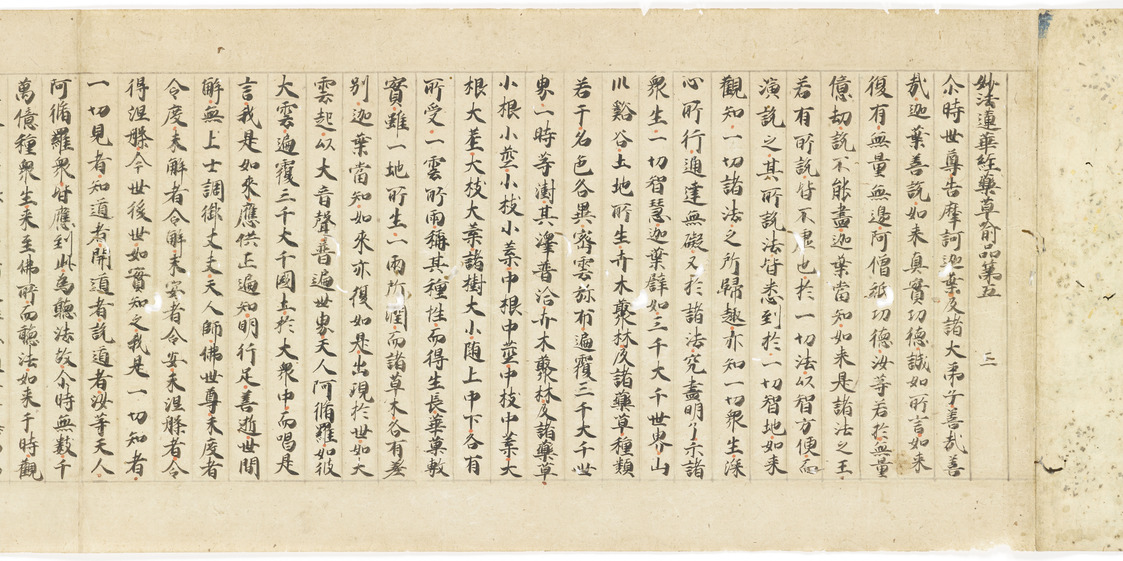 妙法蓮華經藥草喻品第五　三
尒時世尊告摩訶迦葉及諸大弟子善哉善
哉迦葉善說如來真實功德誠如所言如來
復有無量無邊阿僧祇功德汝等若於無量
億劫說不能盡迦葉當知如來是諸法之王
若有所說皆不虛也於一切法以智方便而
演說之其所說法皆悉到於一切智地如來
觀知一切諸法之所歸趣亦知一切衆生深
心所行通達無礙又於諸法究盡明了示諸
衆生一切智慧迦葉譬如三千大千世界山
川谿谷土地所生卉木藂林及諸藥草種類
若干名色各異密雲弥布遍覆三千大千世
界一時等澍其澤普洽卉木藂林及諸藥草
小根小莖小枝小葉中根中莖中枝中葉大
根大莖大枝大葉諸樹大小隨上中下各有
所受一雲所雨稱其種性而得生長華菓敷
實雖一地所生一雨所潤而諸草木各有差
別迦葉當知如來亦復如是出現於世如大
雲起以大音聲普遍世界天人阿脩羅如彼
大雲遍覆三千大千國土於大衆中而唱是
言我是如來應供正遍知明行足善逝世間
解無上士調御丈夫天人師佛世尊未度者
令度未解者令解未安者令安未涅槃者令
得涅槃今世後世如實知之我是一切知者
一切見者知道者開道者說道者汝等天人
阿脩羅衆皆應到此為聽法故尒時無數千
萬億種衆生來至佛所而聽法如來于時觀